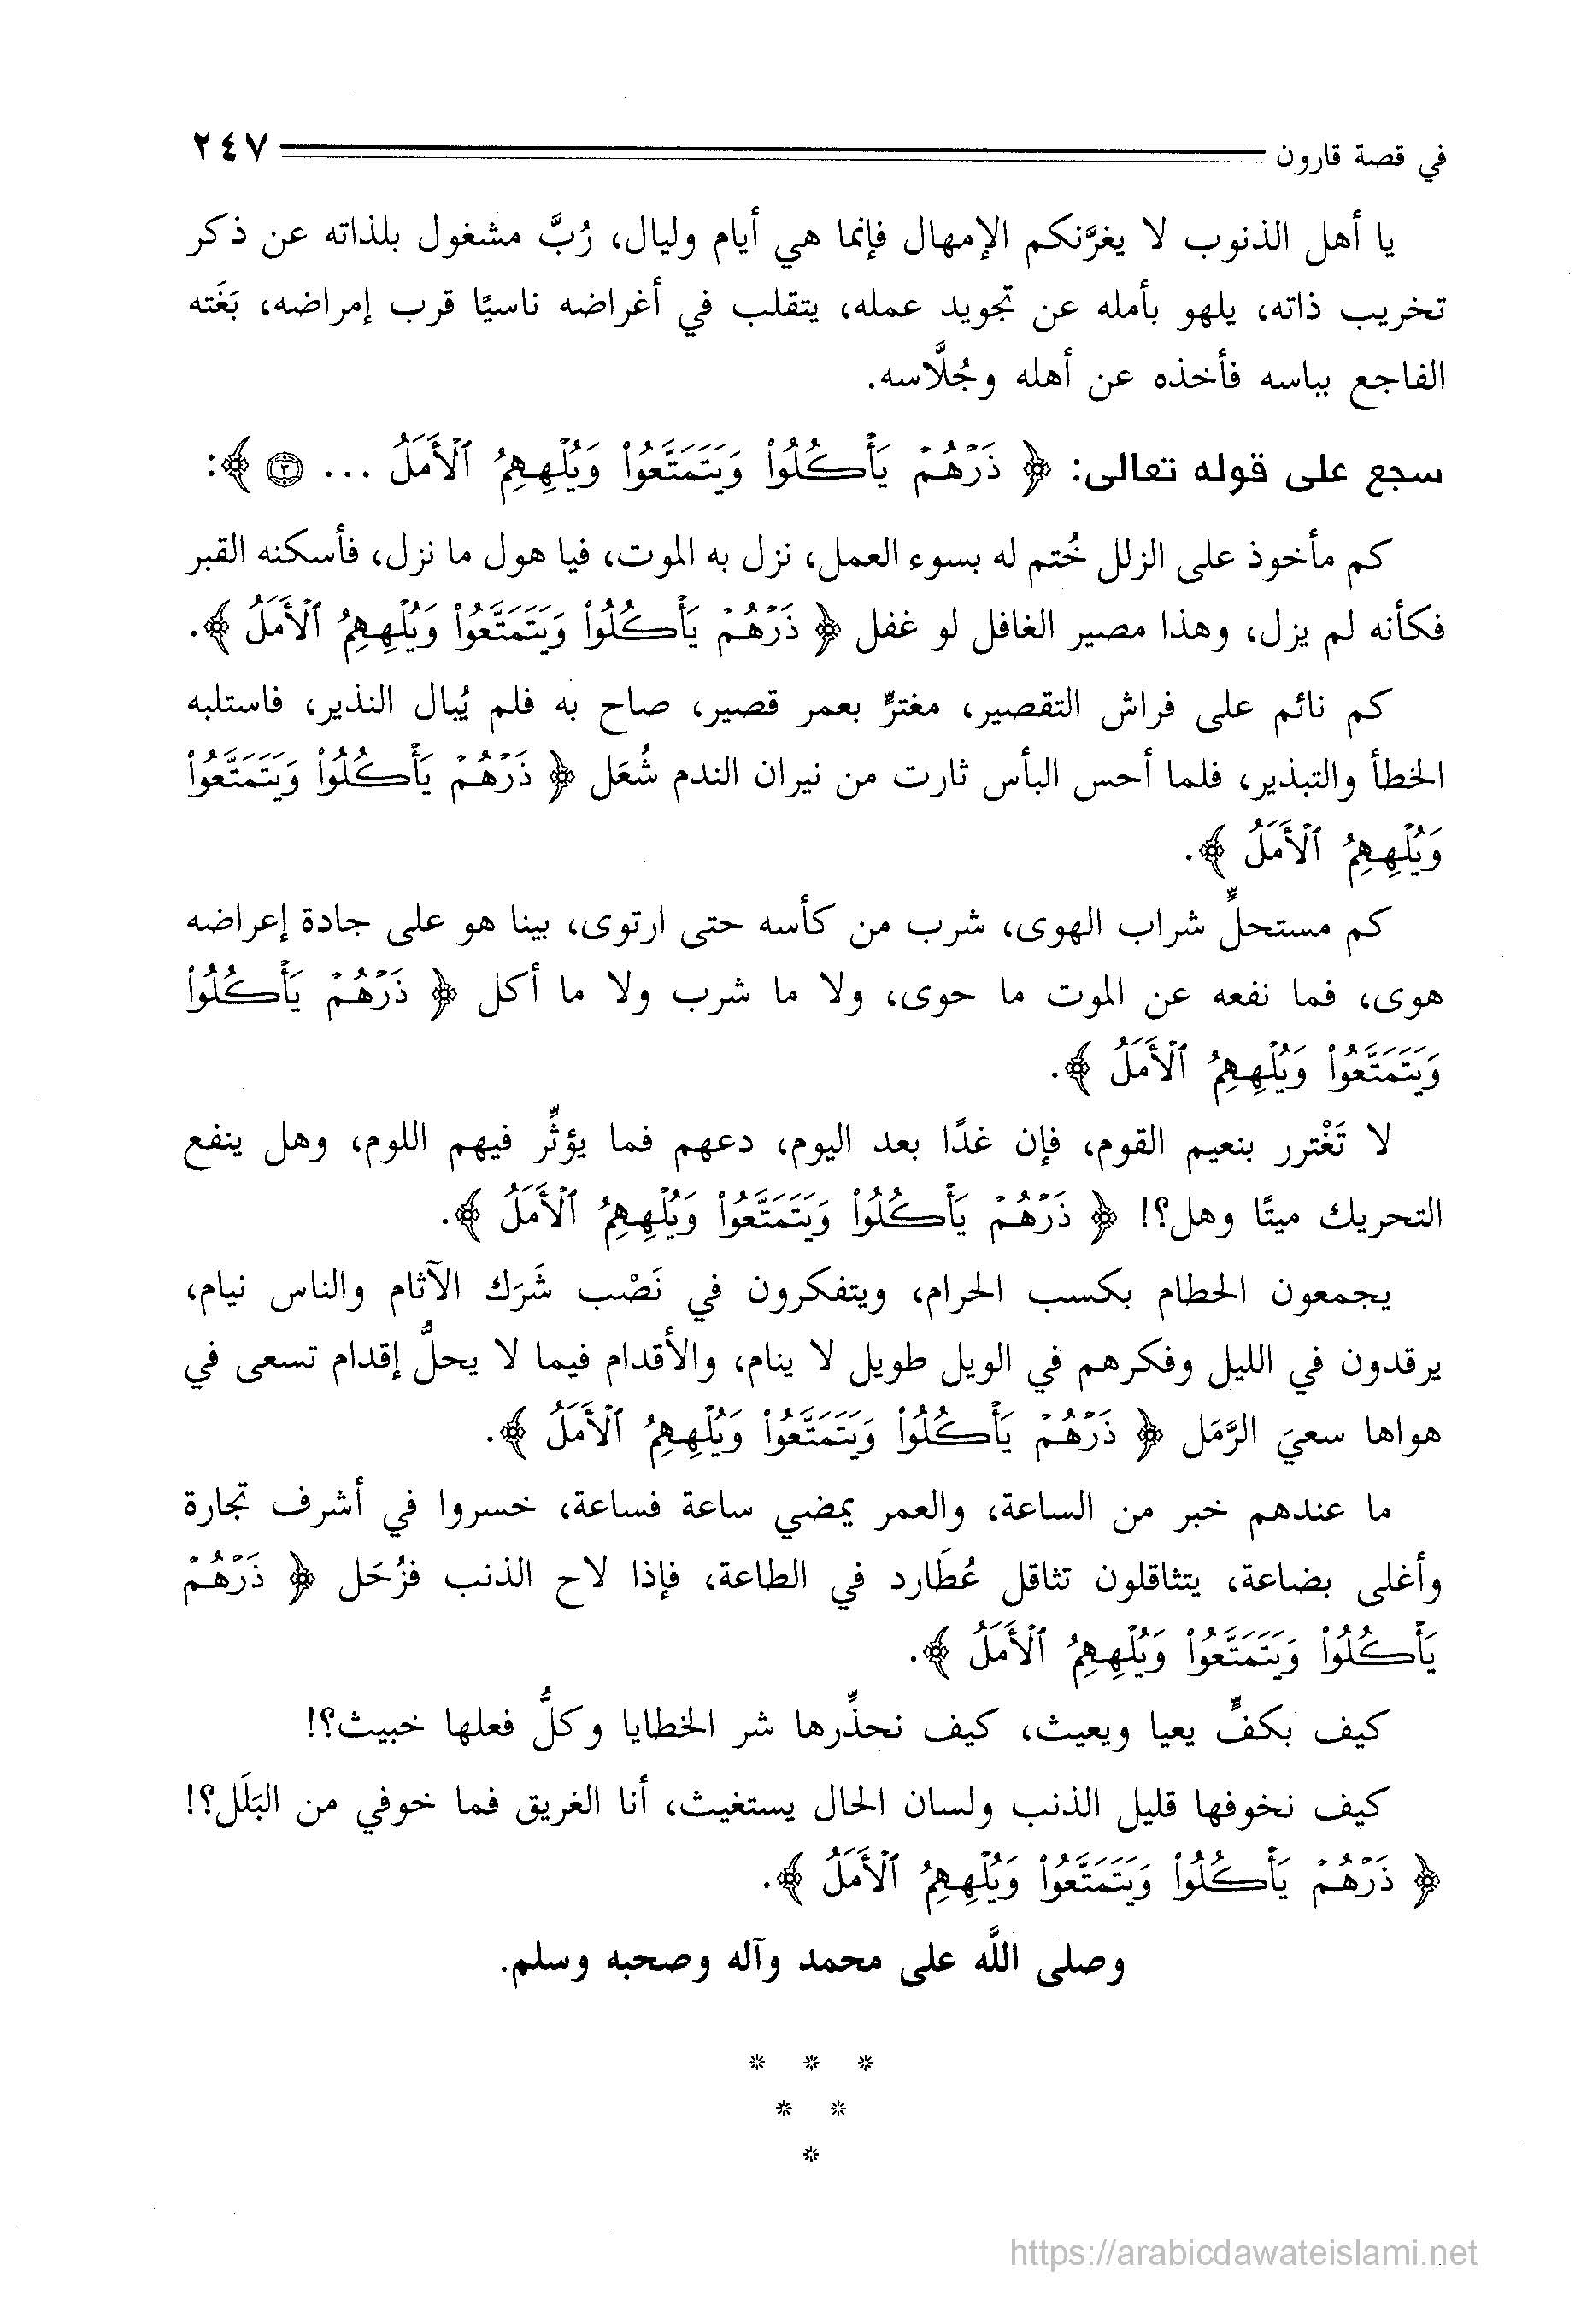 في قصة قارون ٢٤٧
يا أهل الذنوب لا يغرَّنكم الإمهال فإنما هي أيام وليال، رُبَّ مشغول بلذاته عن ذكر
تخريب ذاته، يلهو بأمله عن تجويد عمله، يتقلب في أغراضه ناسيًا قرب إمراضه، بَغَته
الفاجع بباسه فأخذه عن أهله وجُلَّاسه.
سجع على قوله تعالى: ﴿ ذَرْهُمْ يَأْكُلُوا۟ وَيَتَمَتَّعُوا۟ وَيُلْهِهِمُ ٱلْأَمَلُ ... ٣ ﴾:
كم مأخوذ على الزلل خُتم له بسوء العمل، نزل به الموت، فيا هول ما نزل، فأسكنه القبر
فكأنه لم يزل، وهذا مصير الغافل لو غفل ﴿ ذَرْهُمْ يَأْكُلُوا۟ وَيَتَمَتَّعُوا۟ وَيُلْهِهِمُ ٱلْأَمَلُ ﴾.
كم نائم على فراش التقصير، مغترٍّ بعمر قصير، صاح به فلم يُبال النذير، فاستلبه
الخطأ والتبذير، فلما أحس البأس ثارت من نيران الندم شُعَل ﴿ ذَرْهُمْ يَأْكُلُوا۟ وَيَتَمَتَّعُوا۟
وَيُلْهِهِمُ ٱلْأَمَلُ ﴾.
كم مستحلٍّ شراب الهوى، شرب من كأسه حتى ارتوى، بينا هو على جادة إعراضه
هوى، فما نفعه عن الموت ما حوى، ولا ما شرب ولا ما أكل ﴿ ذَرْهُمْ يَأْكُلُوا۟
وَيَتَمَتَّعُوا۟ وَيُلْهِهِمُ ٱلْأَمَلُ ﴾.
لا تَغْترر بنعيم القوم، فإن غدًا بعد اليوم، دعهم فما يؤثِّر فيهم اللوم، وهل ينفع
التحريك ميتًا وهل؟! ﴿ ذَرْهُمْ يَأْكُلُوا۟ وَيَتَمَتَّعُوا۟ وَيُلْهِهِمُ ٱلْأَمَلُ ﴾.
يجمعون الحطام بكسب الحرام، ويتفكرون في نَصْب شَرَك الآثام والناس نيام،
يرقدون في الليل وفكرهم في الويل طويل لا ينام، والأقدام فيما لا يحلُّ إقدام تسعى في
هواها سعيَ الرَّمَل ﴿ ذَرْهُمْ يَأْكُلُوا۟ وَيَتَمَتَّعُوا۟ وَيُلْهِهِمُ ٱلْأَمَلُ ﴾.
ما عندهم خبر من الساعة، والعمر يمضي ساعة فساعة، خسروا في أشرف تجارة
وأغلى بضاعة، يتثاقلون تثاقل عُطَارد في الطاعة، فإذا لاح الذنب فزُحَل ﴿ ذَرْهُمْ
يَأْكُلُوا۟ وَيَتَمَتَّعُوا۟ وَيُلْهِهِمُ ٱلْأَمَلُ ﴾.
كيف بكفٍّ يعيا ويعيث، كيف نحذِّرها شر الخطايا وكلُّ فعلها خبيث؟!
كيف نخوفها قليل الذنب ولسان الحال يستغيث، أنا الغريق فما خوفي من البَلَل؟!
﴿ ذَرْهُمْ يَأْكُلُوا۟ وَيَتَمَتَّعُوا۟ وَيُلْهِهِمُ ٱلْأَمَلُ ﴾.
وصلى اللَّه على محمد وآله وصحبه وسلم.
* * *
* *
*
https://arabicdawateislami.net